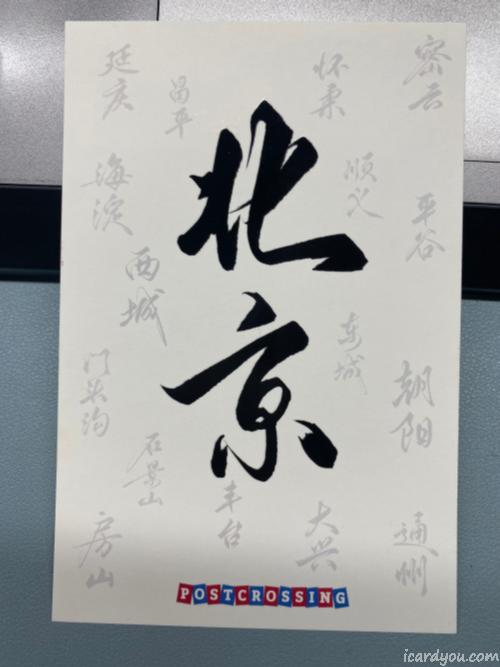 延庆
昌平
怀柔
密云
海淀
顺义
平谷
北京
西城
东城
门头沟
朝阳
石景山
丰台
房山
大兴
通州
POSTCROSSING
icardyou.com